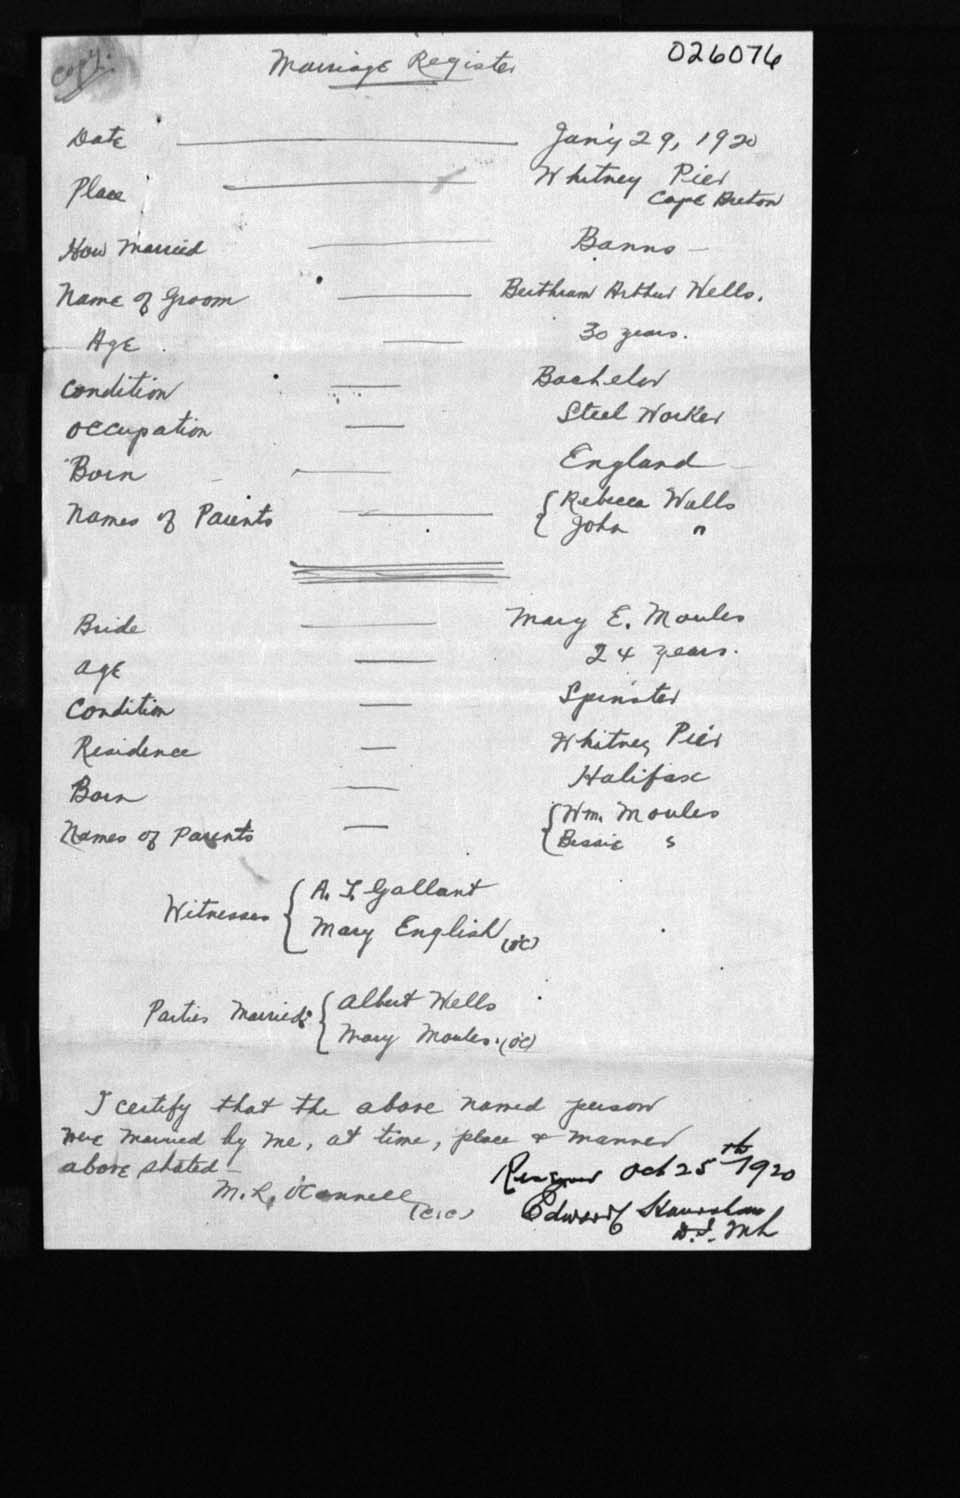 Copy.
026076
Marriage Register
Date Jan'y 29, 1920
Place Whitney Pier
Cape Breton
How Married Banns
Name of Groom Bertham Arthur Wells.
Age 30 years.
Condition Bachelor
Occupation Steel Worker
Born England
Names of Parents { Rebecca Wells
John "
Bride Mary E. Moules
Age 24 years.
Condition Spinster
Residence Whitney Pier
Born Halifax
Names of Parents { Wm. Moules
Bessie s
Witnesses { A. T. Gallant
Mary English (o'c)
Parties Married: { Albert Wells
Mary Moules. (o'c)
I certify that the above named person
were married by me, at time, place & manner
above stated –
M. R. O'Connell
(C.C.)
Oct 25th 1920
Edward